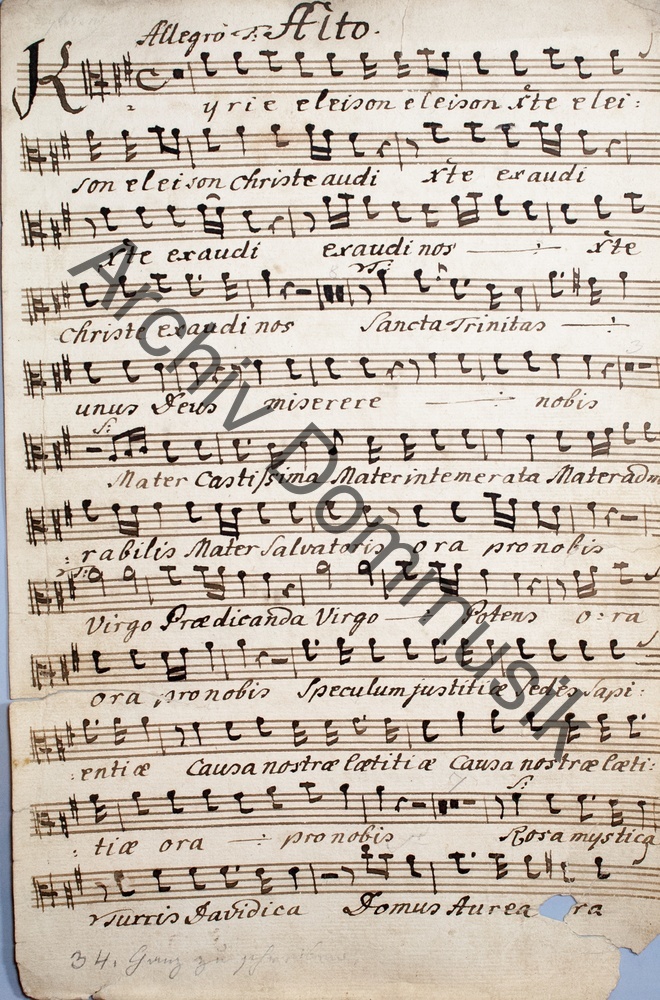 Allegro T: Alto.
Kyrie eleison eleison Xte elei:
son eleison Christe audi Xte exaudi
Xte exaudi exaudi nos Xte
Christe exaudi nos Sancta Trinitas
unus Deus miserere nobis
S:
Mater Castissima Mater intemerata Mater adm
: rabilis Mater Salvatoris ora pro nobis
Virgo Prædicanda Virgo Potens o: ra
ora pro nobis Speculum justitiæ Sedes Sapi:
: entiæ Causa nostræ lætitiæ Causa nostræ læti:
S:
: tiæ ora pro nobis Rosa mystica
Turris Davidica Domus Aurea ra
34. Ganz zu
Archiv Dommusik